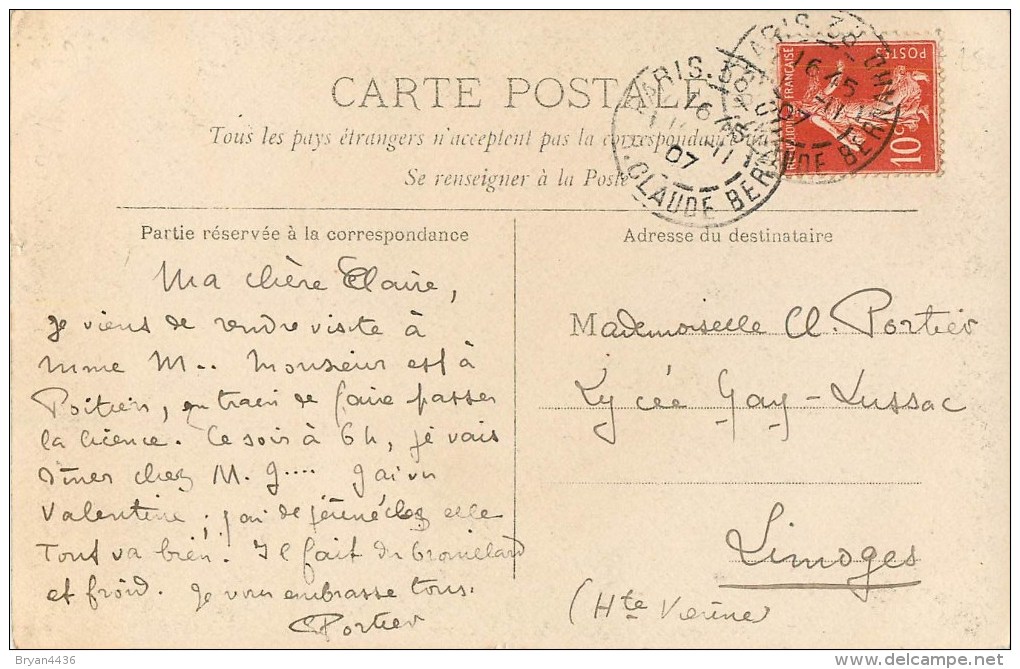 CARTE POSTALE
Tous les pays étrangers n'acceptent pas la correspondance
Se renseigner à la Poste
PARIS. 38
16 45
07
CLAUDE BERNARD
PARIS. 38
16 45
07
CLAUDE BERNARD
POSTES
REPUBLIQUE FRANÇAISE
10c
Partie réservée à la correspondance
Ma chère Claire,
je viens de rendre visite à
Mme M.. Monsieur est à
Poitiers, en train de faire passer
la licence. Ce soir à 6h, je vais
dîner chez M. J.... J'ai vu
Valentine; j'ai déjeuné chez elle
Tout va bien. Il fait du brouillard
et froid. Je vous embrasse tous.
CPortier
Adresse du destinataire
Mademoiselle Cl. Portier
Lycée Gay-Lussac
Limoges
(Hte Vienne)
Bryan4436
http://www.delcampe.net